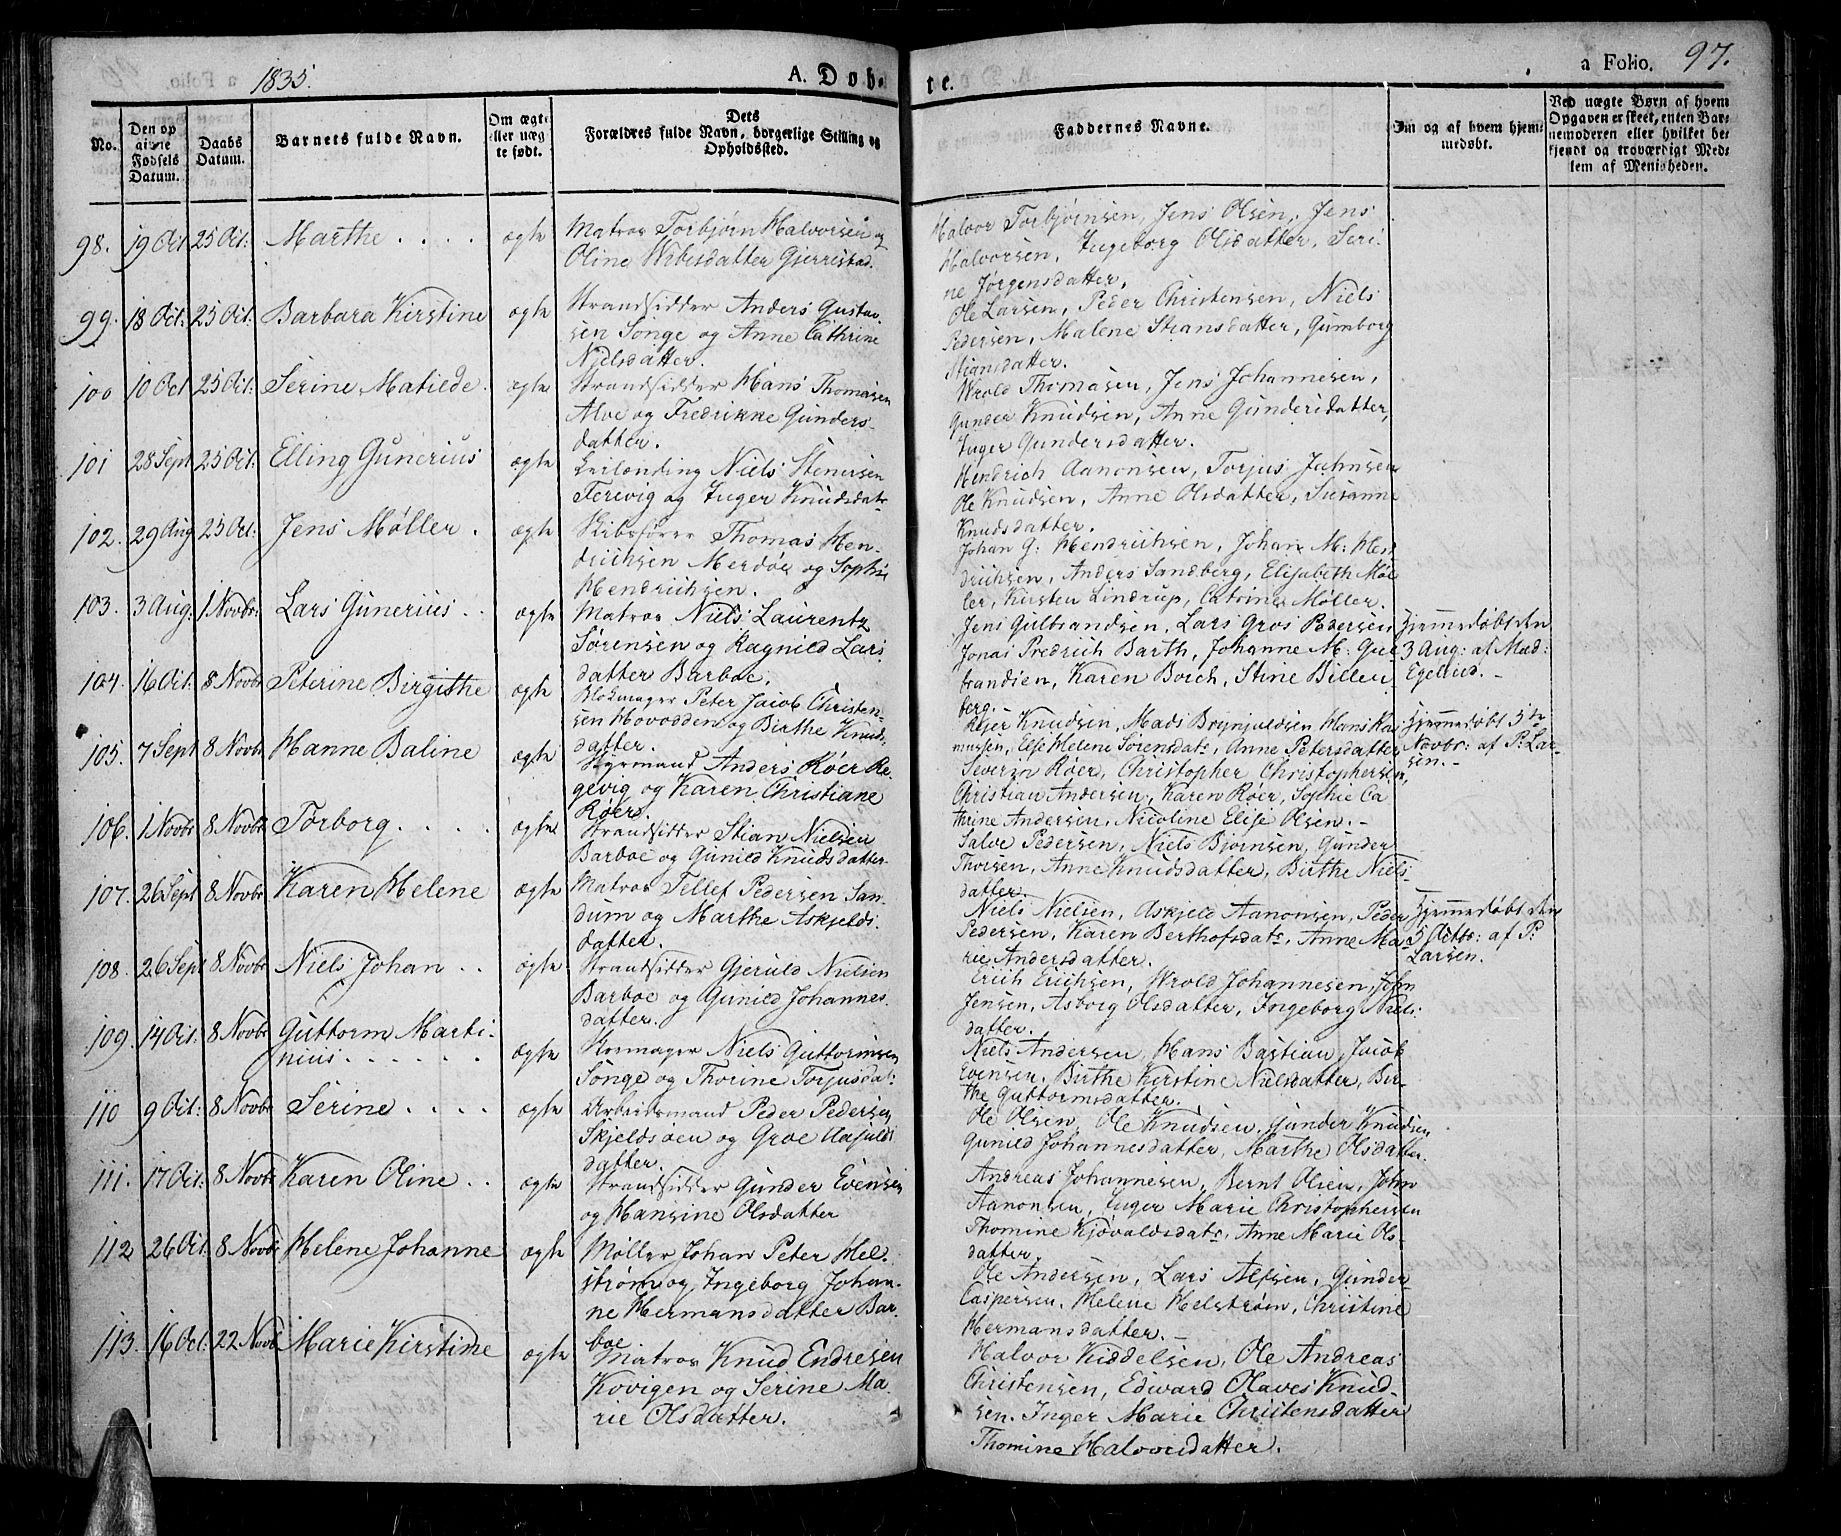 1835.
A. Døb-
te.
a Folio. 97.
No.
Den op
givne
Fødsels
Datum.
Daabs
Datum.
Barnets fulde Navn.
Om ægte
eller uæg
te født.
Dets
Forældres fulde Navn, borgerlige Stilling og
Opholdssted.
Faddernes Navne.
Om og af hvem hjem-
medøbt.
Ved uægte Børn af hvem
Opgaven er skeet, enten Bar-
nemoderen eller hvilket be-
kjendt og troværdigt Med-
lem af Menigheden.
98. 19 Oct 25 Oct: Marthe . . . . ægte
Matros Torbjørn Halvorsen og
Oline Wibesdatter Gjerrestad.
Halvor Torbjørnsen, Jens Olsen, Jens
Halvorsen, Ingeborg Olsdatter, Seri-
ne Jørgensdatter.
99. 18 Oct: 25 Oct: Barbara Kirstine ægte
Strandsidder Anders Gustav
sen Songe og Anne Cathrine
Nielsdatter.
Ole Larsen, Peder Christensen, Niels
Pedersen, Malene Stiansdatter, Gumborg
Stiansdatter.
100 10 Oct 25 Oct: Serine Matilde. ægte
Strandsidder Hans Thomasen
Alve og Fredrikke Gunders-
datter.
Wrold Thomasen, Jens Johannesen,
Gunder Knudsen, Anne Gundersdatter,
Inger Gundersdatter.
101 28 Sept 25 Oct: Elling Gunerius ægte
Qvilænding Niels Stenersen
Terevig og Inger Knudsdatr
Hendrich Aanonsen, Torjus Jahnsen
Ole Knudsen, Anne Olsdatter, Susanne
Knudsdatter.
102. 29 Aug 25 Oct: Jens Møller. ægte
Skibsfører Thomas Hen-
drichsen Merdøe og Sophie
Hendrichsen.
Johan G: Hendrichsen, Johan M: Hen
drichsen, Anders Sandberg, Elisabeth Møl
ler, Kirsten Lindrup, Catrine Møller.
103. 3 Aug: 1 Novbr: Lars Gunerius . . ægte
Matros Niels Laurentz
Sørensen og Ragnild Lars
datter Barboe.
Jens Gulbrandsen, Lars Gros Pedersen
Jonas Fredrich Barth, Johanne M: Gul
brandsen, Karen Borch, Stine Billen
berg.
Hjemmedøbt den
3 Aug: af Mad:
Egelund. -
104. 16 Oct: 8 Novbr Peterine Birgithe ægte
Blokmager Peter Jacob Christen-
sen Hovodden og Birthe Knuds
datter.
Rejer Knudsen, Mads Brynjuldsen, Hans Ra
mussen, Else Helene Sørensdatr, Anne Petersdatter
Hjemmedøbt 5te
Novbr: af P: Lar-
sen. -
105. 7 Sept 8 Novbr Hanne Baline ægte
Styrmand Anders Røer Re-
gevig og Karen Christiane
Røer.
Severin Røer, Christopher Christophersen,
Christian Andersen, Karen Røer, Sophie Ca
thrine Andersen, Nicoline Elise Olsen. -
106. 1 Novbr 8 Novbr Torborg . . . . ægte
Strandsidder Stian Nielsen
Barboe og Gunild Knudsdatter
Salve Pedersen, Niels Bjørnsen, Gunder
Thorsen, Anne Knudsdatter, Birthe Niels-
datter.
107. 26 Sept 8 Novbr Karen Helene ægte
Matros Tellef Pedersen San-
dum og Marthe Askjelds
datter.
Niels Nielsen, Askjeld Aanonsen, Peder
Pedersen, Karen Berthofsdatr, Anne Ma-
rie Andersdatter.
Hjemmedøbt den
5 Octbr: af P:
Larsen.
108. 26 Sept 8 Novbr Niels Johan . . ægte
Strandsidder Gjeruld Nielsen
Barboe og Gunild Johannes
datter.
Erich Erichsen, Wrold Johannesen, John
Jensen, Asborg Olsdatter, Ingeborg Niels
datter.
109. 14 Oct: 8 Novbr Guttorm Marti-
nius . . . . . . ægte
Kosmager Niels Guttormsen
Songe og Thorine Torjusdat:
Niels Andersen, Hans Bastian, Jacob
Evensen, Birthe Kirstine Nielsdatter, Bir-
the Guttormsdatter.
110 9 Oct: 8 Novbr Serine . . . . ægte
Arbeidsmand Peder Pedersen
Skjeldsøen og Groe Aasulds
datter.
Ole Olsen, Ole Knudsen, Gunder Knudsen
Gunild Johannesdatter, Marthe Olsdatter.
111. 17 Oct: 8 Novbr Karen Oline . . ægte
Strandsidder Gunder Evensen
og Hansine Olsdatter
Andreas Johannesen, Bernt Olsen, John
Aanonsen, Inger Marie Christophersen
Thomine Kjøvaldsdatr, Anne Marie Ols-
datter.
112 26 Oct: 8 Novbr Helene Johanne ægte
Møller Johan Peter Hel-
strøm og Ingeborg Johan-
ne Hermansdatter Bar-
boe
Ole Andersen, Lars Alfsen, Gunder
Caspersen, Helene Helstrøm, Christine
Hermansdatter. -
113. 16 Oct. 22 Novbr Marie Kirstine ægte
Matros Knud Endresen
Kovigen og Serine Ma-
rie Olsdatter.
Halvor Kiddelsen, Ole Andreas
Christensen, Edward Olaves Knud-
sen. Inger Marie Christensdatter
Thomine Halvorsdatter.